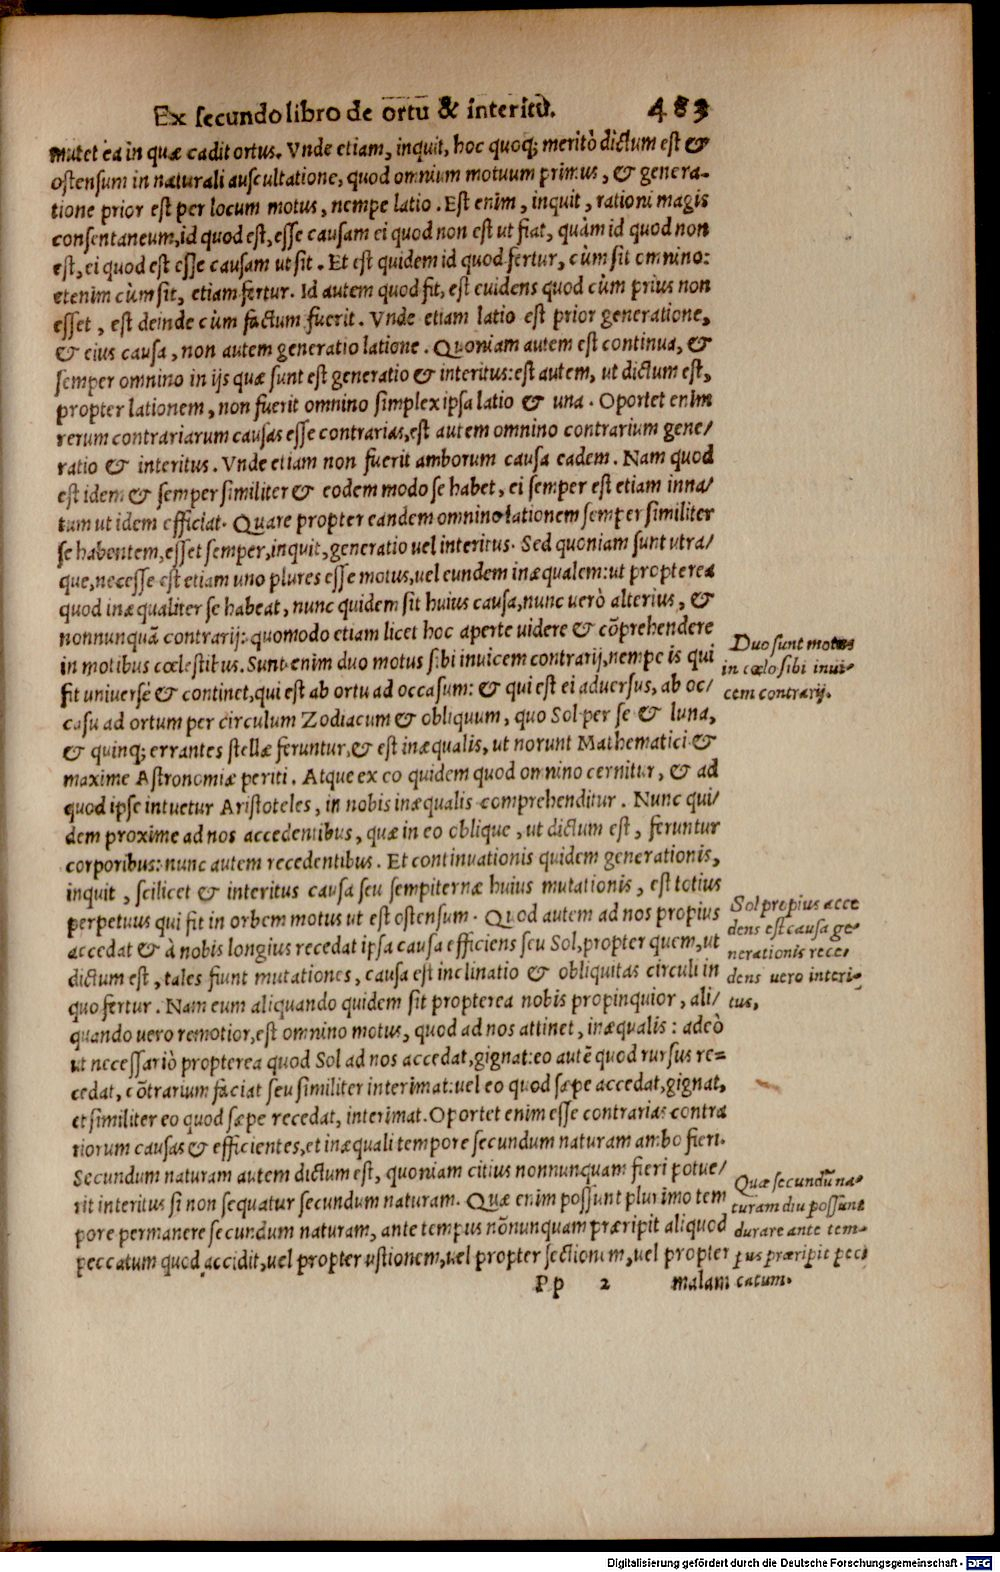 Ex secundo libro de ortu & interitu. 483
mutet ea in quæ cadit ortus. Vnde etiam, inquit, hoc quoq; meritò dictum est &
ostensum in naturali auscultatione, quod omnium motuum primus, & genera-
tione prior est per locum motus, nempe latio. Est enim, inquit, rationi magis
consentaneum, id quod est, esse causam ei quod non est ut fiat, quàm id quod non
est, ei quod est esse causam ut sit. Et est quidem id quod fertur, cùm sit omnino:
etenim cùm sit, etiam fertur. Id autem quod fit, est euidens quod cùm prius non
esset, est deinde cùm factum fuerit. Vnde etiam latio est prior generatione,
& eius causa, non autem generatio latione. Quoniam autem est continua, &
semper omnino in ijs quæ sunt est generatio & interitus: est autem, ut dictum est,
propter lationem, non fuerit omnino simplex ipsa latio & una. Oportet enim
rerum contrariarum causas esse contrarias, est autem omnino contrarium gene/
ratio & interitus. Vnde etiam non fuerit amborum causa eadem. Nam quod
est idem & semper similiter & eodem modo se habet, ei semper est etiam inna/
tum ut idem efficiat. Quare propter eandem omnino lationem semper similiter
se habentem, esset semper, inquit, generatio uel interitus. Sed quoniam sunt utra/
que, necesse est etiam uno plures esse motus, uel eundem inæqualem: ut propterea
quod inæqualiter se habeat, nunc quidem sit huius causa, nunc uerò alterius, &
nonnunquã contrarij: quomodo etiam licet hoc aperte uidere & cõprehendere
in motibus cœlestibus. Sunt enim duo motus sibi inuicem contrarij, nempe is qui
fit uniuersè & continet, qui est ab ortu ad occasum: & qui est ei aduersus, ab oc/
casu ad ortum per circulum Zodiacum & obliquum, quo Sol per se & luna,
& quinq; errantes stellæ feruntur, & est inæqualis, ut norunt Mathematici &
maxime Astronomiæ periti. Atque ex eo quidem quod omnino cernitur, & ad
quod ipse intuetur Aristoteles, in nobis inæqualis comprehenditur. Nunc qui/
dem proxime ad nos accedentibus, quæ in eo oblique, ut dictum est, feruntur
corporibus: nunc autem recedentibus. Et continuationis quidem generationis,
inquit, scilicet & interitus causa seu sempiternæ huius mutationis, est totius
perpetuus qui fit in orbem motus ut est ostensum. Quod autem ad nos propius
accedat & à nobis longius recedat ipsa causa efficiens seu Sol, propter quem, ut
dictum est, tales fiunt mutationes, causa est inclinatio & obliquitas circuli in
quo fertur. Nam cum aliquando quidem sit propterea nobis propinquior, ali/
quando uero remotior, est omnino motus, quod ad nos attinet, inæqualis: adeò
ut necessariò propterea quod Sol ad nos accedat, gignat: eo autẽ quod rursus re=
cedat, cõtrarium faciat seu similiter interimat: uel eo quod sæpe accedat, gignat,
et similiter eo quod sæpe recedat, interimat. Oportet enim esse contrarias contra
riorum causas & efficientes, et inæquali tempore secundum naturam ambo fieri.
Secundum naturam autem dictum est, quoniam citius nonnunquam fieri potue/
rit interitus si non sequatur secundum naturam. Quæ enim possunt plurimo tem
pore permanere secundum naturam, ante tempus nõnunquam præripit aliquod
peccatum quod accidit, uel propter ustionem, uel propter sectionem, uel propter
Pp 2 malam
Duo sunt motus
in cœlo sibi inui-
cem contrarij.
Sol propius acce
dens est causa ge-
nerationis rece/
dens uero interi-
tus,
Quæ secundũ na-
turam diu possunt
durare ante tem-
pus præripit pec
catum.
Digitalisierung gefördert durch die Deutsche Forschungsgemeinschaft - DFG